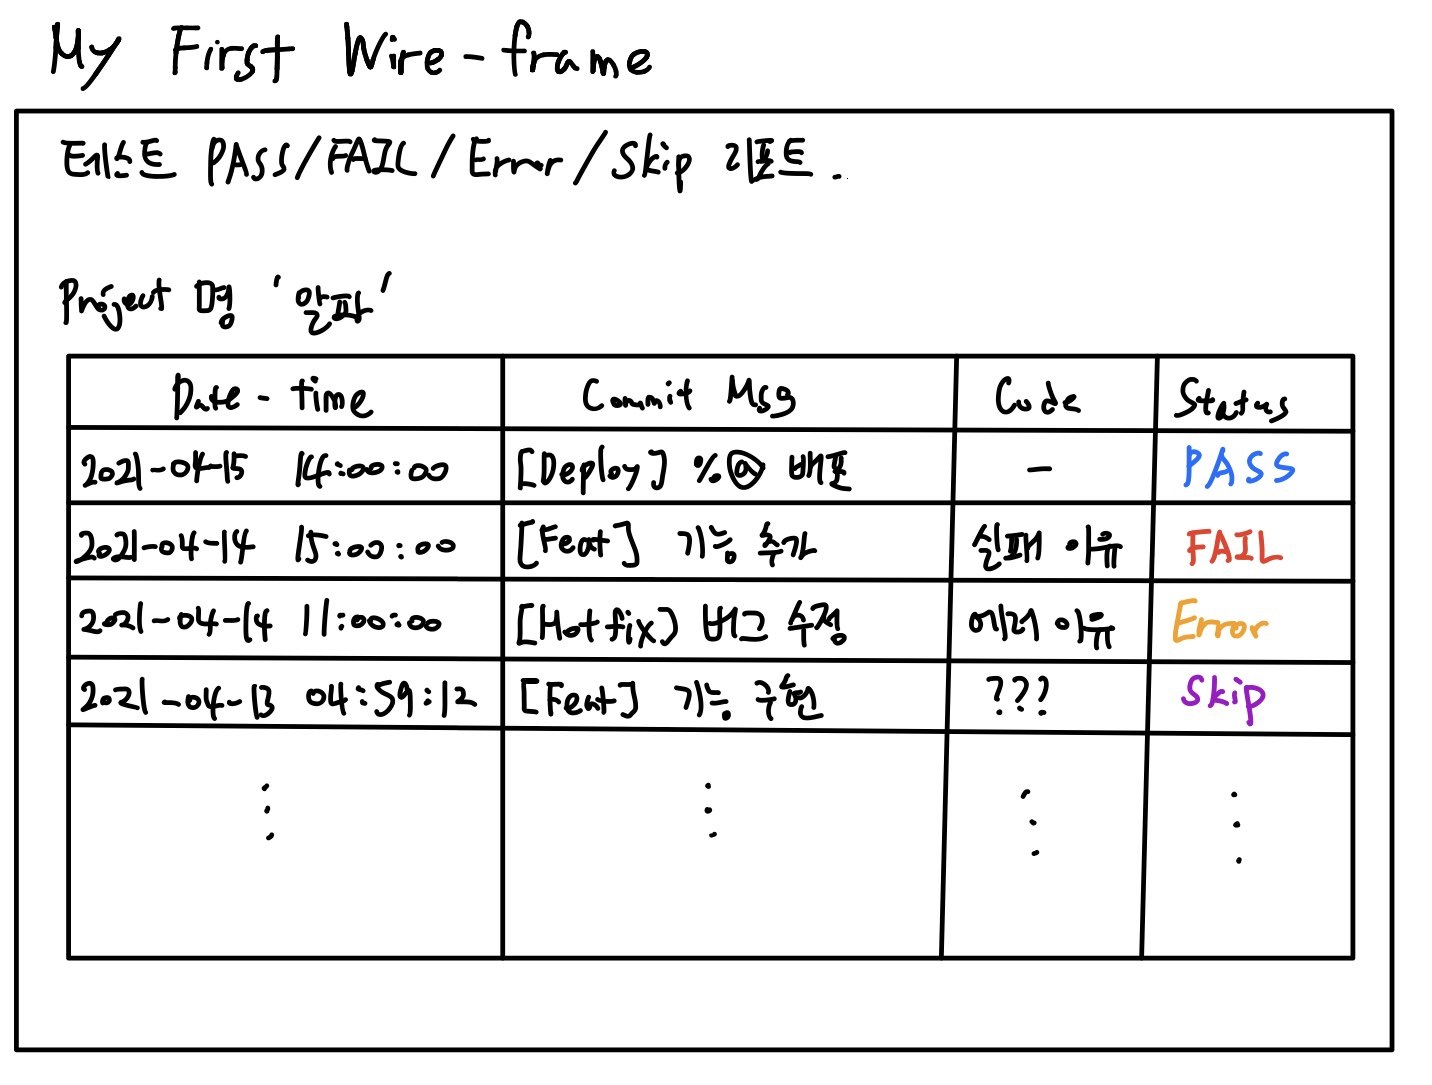 My First Wire-frame
테스트 PASS/FAIL/Error/Skip 리포트.
Project 명 '알파'
Date-time Commit Msg Code Status
2021-04-15 14:00:00 [Deploy] 배포 - PASS
2021-04-14 15:00:00 [Feat] 기능 추가 실패 이유 FAIL
2021-04-14 11:00:00 [Hotfix) 버그 수정 에러 이유 Error
2021-04-13 04:59:12 [Feat] 기능 구현 ??? Skip